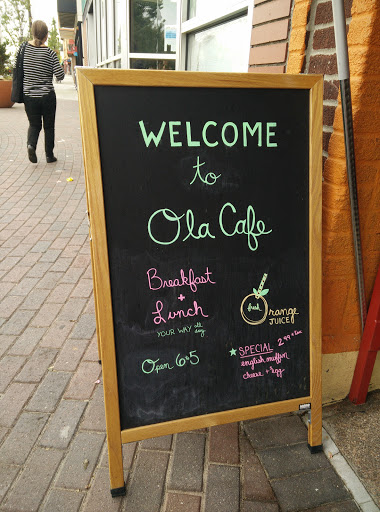 WELCOME
to
Ola Cafe
Breakfast
+
Lunch
YOUR WAY all day
Open 6-5
fresh Orange
JUICE
SPECIAL 2.99 + tax
english muffin
cheese + egg